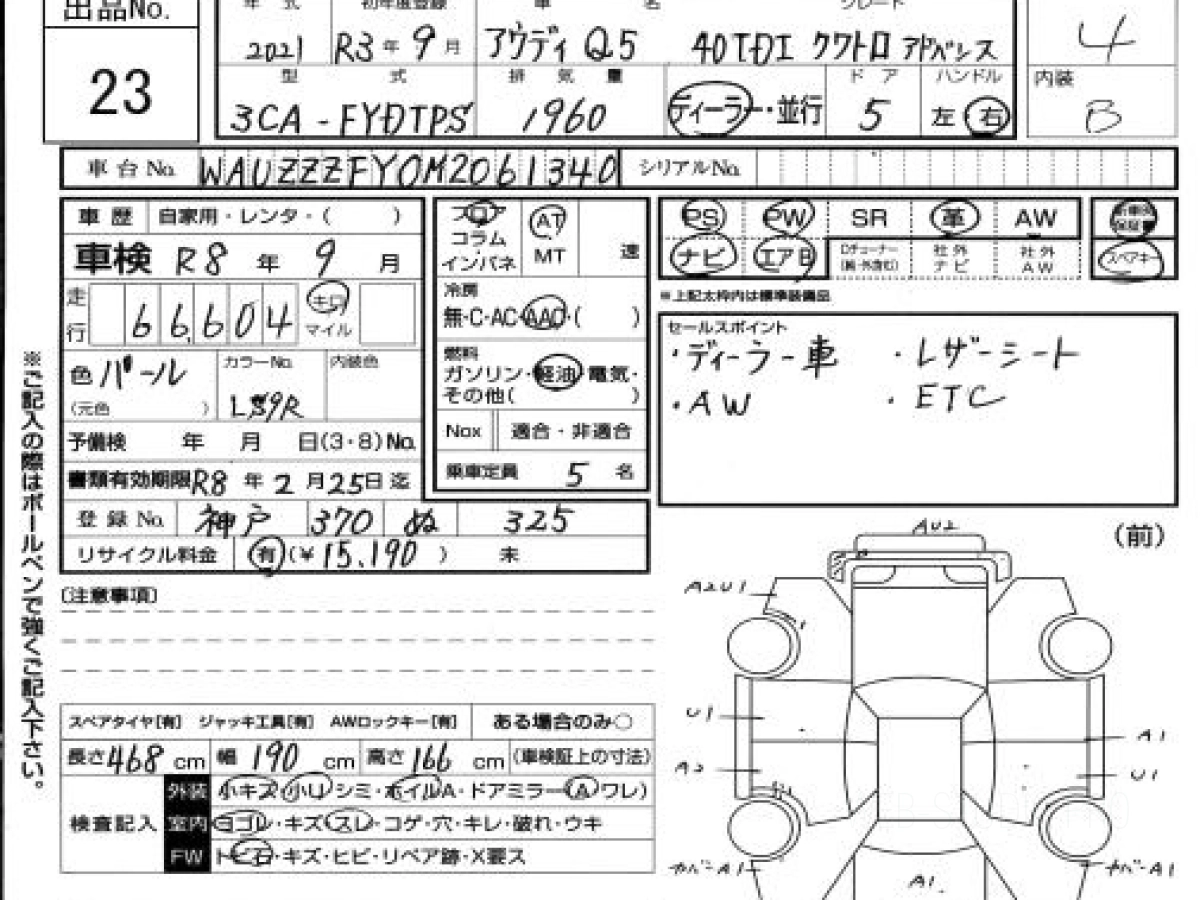 出品No.
23
年式 初年度登録 車名 グレード
2021 R3年9月 アウディ Q5 40TDI クワトロ アドバンス
4
型式 排気量 ドア ハンドル 内装
3CA-FYDTPS 1960 ディーラー・並行 5 左 右 B
車台No. WAUZZZFY0M2061340 シリアルNo.
車歴 自家用・レンタ・( )
車検 R8年9月
走行 66,604 キロ マイル
色 パール カラーNo. 内装色
(元色 ) LS9R
予備検 年 月 日(3・8)No.
書類有効期限 R8年2月25日迄
登録No. 神戸 370 ぬ 325
リサイクル料金 有(¥15,190 ) 未
フロア コラム インパネ AT MT 速
冷房
無・C・AC・AAC・( )
燃料
ガソリン・軽油・電気・
その他( )
Nox 適合・非適合
乗車定員 5名
PS PW SR 革 AW 新車時保証書
ナビ エアB 社外ナビ 社外AW スペアキー
※上記太枠内は標準装備品
セールスポイント
・ディーラー車 ・レザーシート
・AW ・ETC
※ご記入の際はボールペンで強くご記入下さい。
(注意事項)
スペアタイヤ[有] ジャッキ工具[有] AWロックキー[有] ある場合のみ○
長さ468cm 幅190cm 高さ166cm (車検証上の寸法)
検査記入
外装 小キズ・小U・シミ・ホイルA・ドアミラー(A・ワレ)
室内 ヨゴレ・キズ・スレ・コゲ・穴・キレ・破れ・ウキ
FW トビ石・キズ・ヒビ・リペア跡・X要ス
(前)
AU2
A2U1
U1
A1
A2
U1
カバーA1
カバーA1
A1